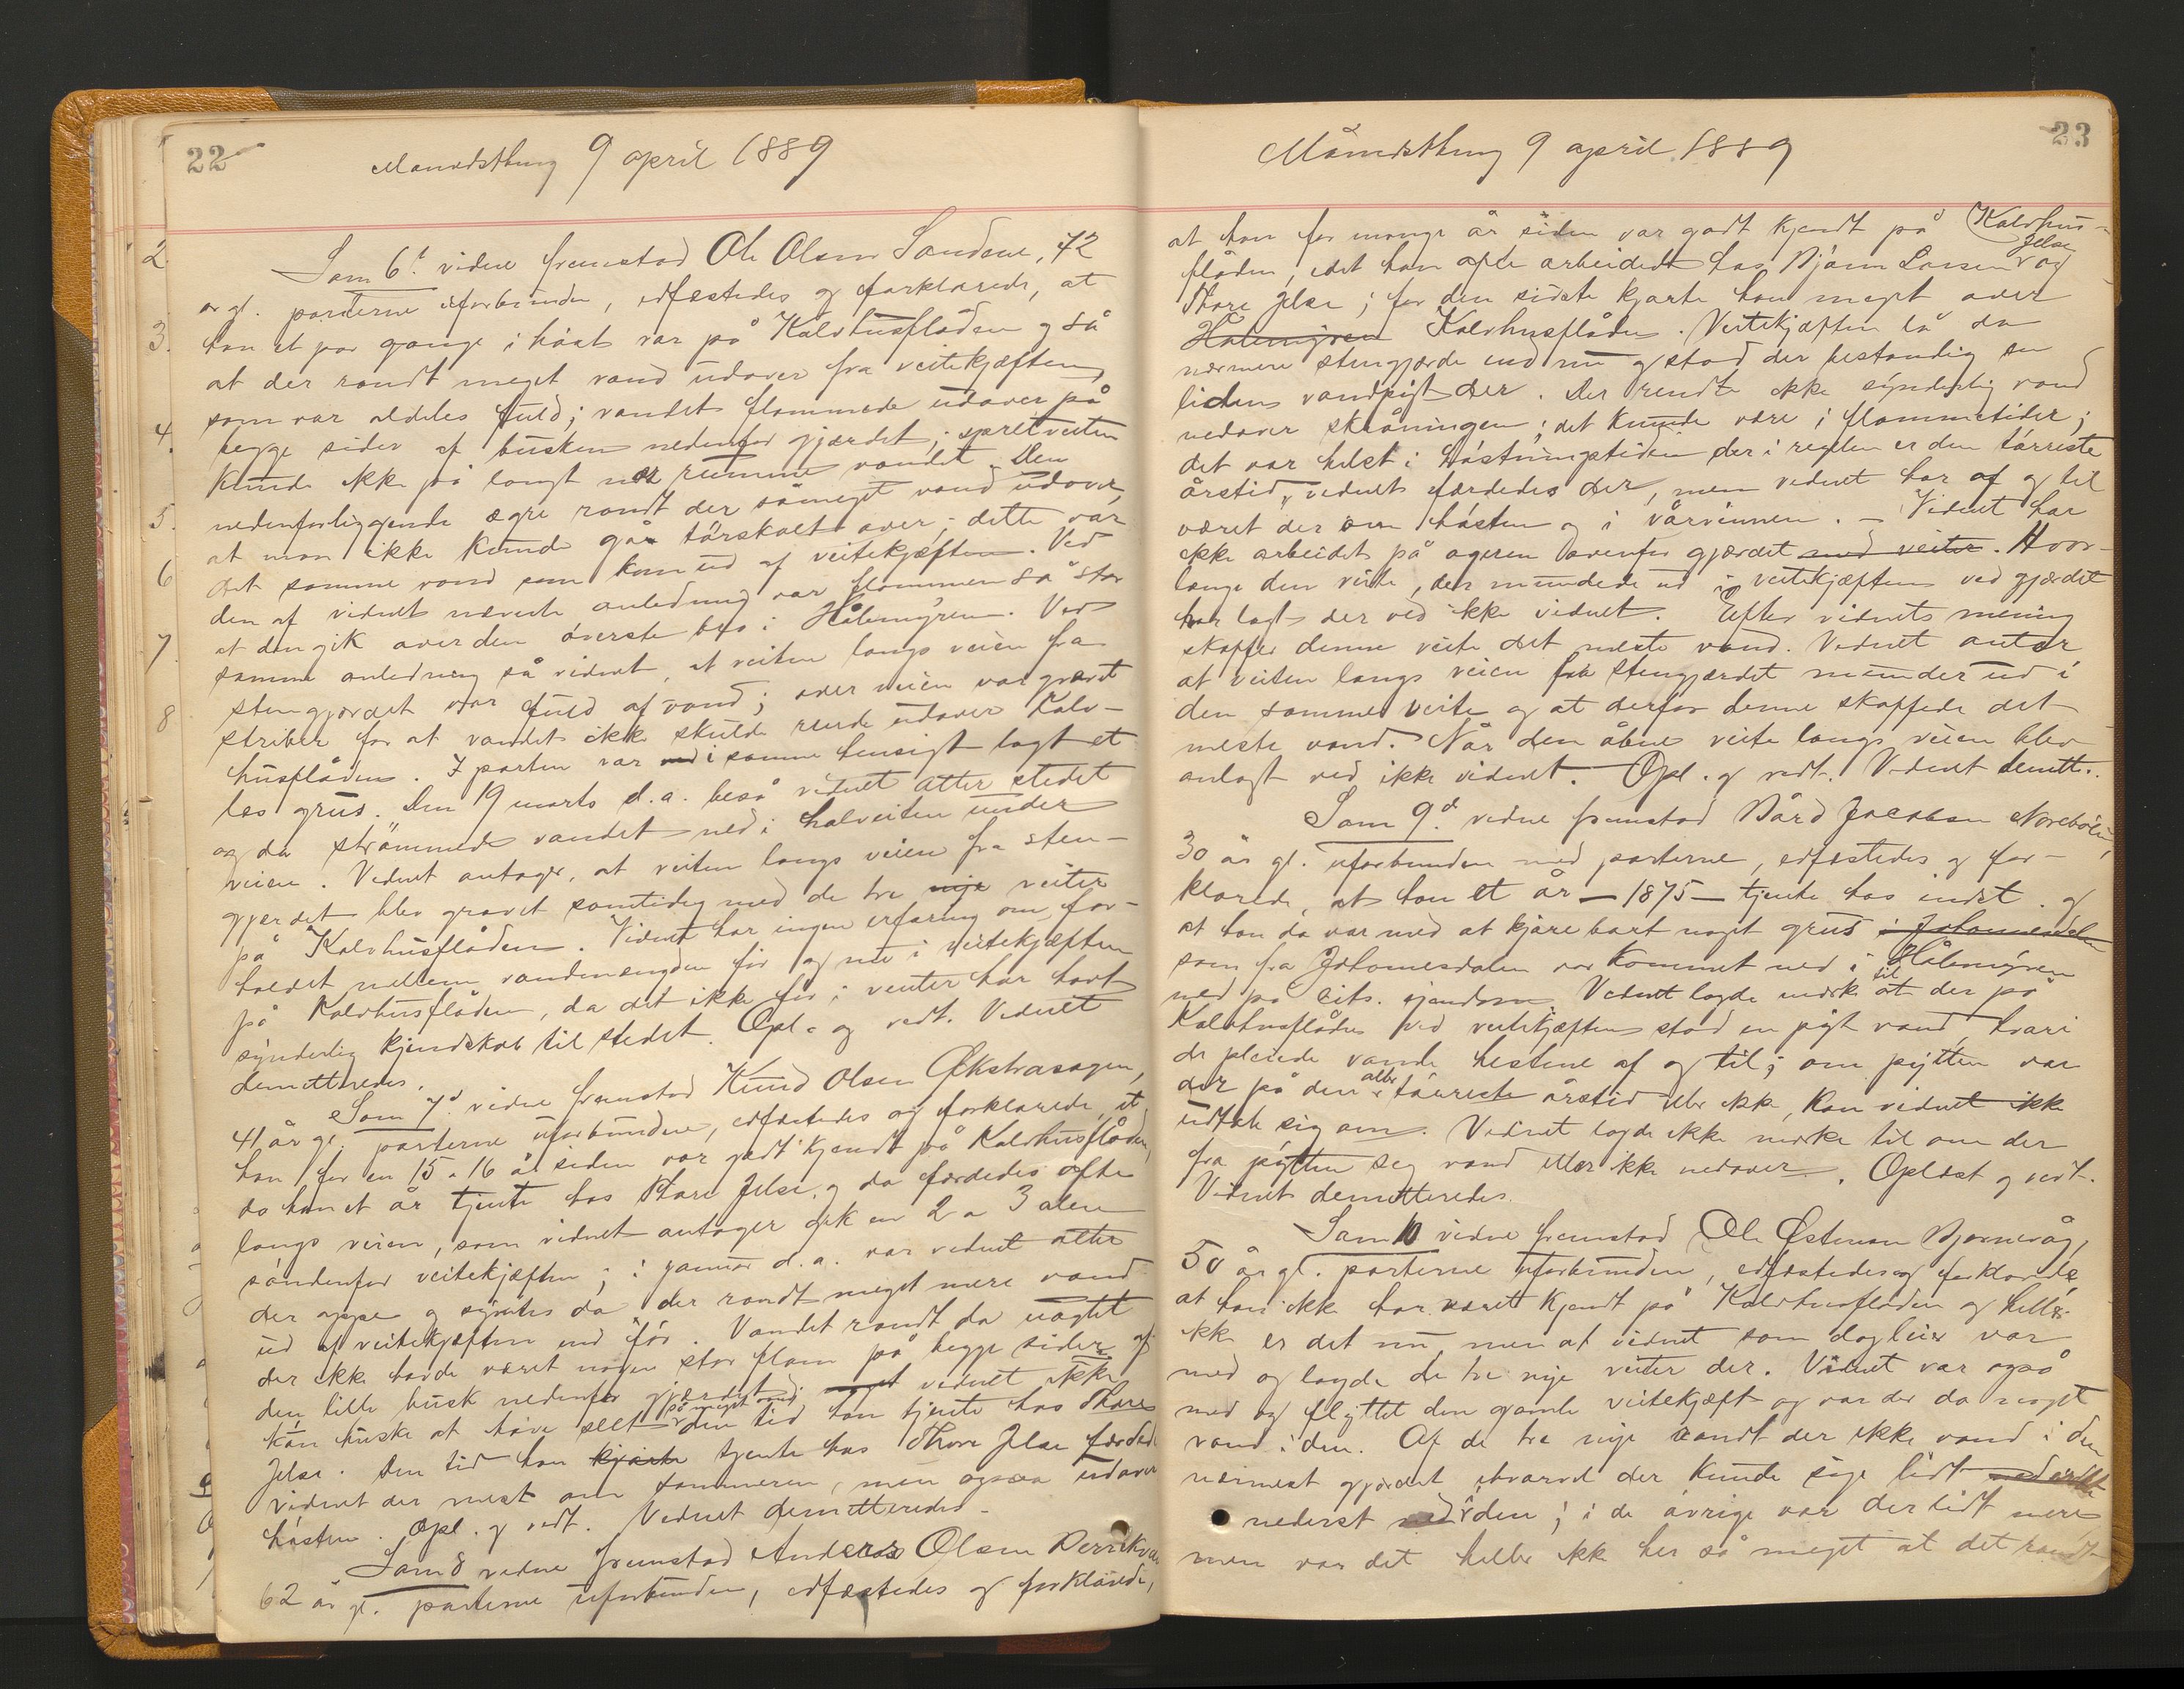 22
Manedsthing 9 april 1889
Som 6t vidne fremstod Ole Olsen Sandene, 42
år gl. parterne uforbunden, edfæstedes og forklarede, at
han et par gange i høst var på Kalvhusflåden og så
at der randt meget vand udover fra veitekjæften
som var aldeles fuld; vandet flommede udover på
begge sider af busken nedenfor gjærdet;
kunde ikke på langt nær rumme vandet. Den
nedenforliggende agre randt der såmeget vand udover,
at man ikke kunde gå tørskoet over; dette var
det samme vand som kom ud af veitekjæften. Ved
den af vidnet nævnte anledning var flommen så stor
at den gik over den øverste bro i Hålemyren. Ved
samme anledning så vidnet, at veiten langs veien fra
stengjærdet var fuld af vand; over veien var gravet
striber for at vandet ikke skulde rende udover Kalv-
husflåden. I porten var i samme hensigt lagt et
læs grus. Den 19 marts d.a. beså vidnet atter stedet
og da strømmede vandet ned i halveiten under
veien. Vidnet antager, at veiten langs veien fra sten-
gjærdet blev gravet samtidig med de tre nye veiter
på Kalvhusflåden. Vidnet har ingen erfaring om for-
holdet mellem vandmængden før og nu i veitekjæften
på Kalvhusflåden, da det ikke før i vinter har havt
synderlig kjendskab til stedet. Opl. og vedt. Vidnet
demitteredes.
Som 7d vidne fremstod Knud Olsen Økstrasagen,
41 år gl. parterne uforbunden, edfæstedes og forklarede, at
han for en 15 a 16 år siden var godt kjendt på Kalvhusflåden,
da han et år tjente hos Thore Jelse, og da færdedes ofte
langs veien, som vidnet antager gik en 2 a 3 alen
søndenfor veitekjæften; i januar d.a. var vidnet atter
der oppe og syntes da der randt meget mere vand
ud af veitekjæften end før. Vandet randt da uagtet
der ikke havde været nogen stor flom på begge sider af
den lille busk nedenfor gjærdet; noget vidnet ikke
kan huske at have seet så meget vand den tid han tjente hos Thore
Jelse. Den tid han kjørte tjente hos Thore Jelse færdedes
vidnet der mest om sommeren, men ogsaa udover
høsten. Opl. og vedt. Vidnet demitteredes.
Som 8 vidne fremstod Anders Olsen
62 år gl. parterne uforbunden, edfæstedes og forklarede,
2
3.
4.
5.
6
7
8
23
Månedsthing 9 april 1889
at han for mange år siden var godt kjendt på Kalvhus-
flåden, idet han ofte arbeidede hos Bjørn Larsen Jelse og
Thore Jelse; for den sidste kjørte han meget over
Hålemyren Kalvhusflåden. Veitekjæften lå da
nærmere stengjærde end nu og stod der bestandig en
liden vandpyt der. Der rendte ikke synderlig vand
nedover skråningen; det kunde være i flommetider;
det var helst i høstningstiden der i reglen er den tørreste
årstid, vidnet færdedes der, men vidnet har af og til
været der om høsten og i vårvinnen. – Vidnet har
ikke arbeidet på ageren ovenfor gjærdet med veiter. Hvor-
længe den veite, der mundede ud i veitekjæften ved gjærdet
har lagt der ved ikke vidnet. Efter vidnets mening
skaffer denne veite det meste vand. Vidnet antar
at veiten langs veien fra stengjærdet munder ud i
den samme veite og at derfor denne skaffede det
meste vand. Når den åbne veite langs veien blev
anlagt ved ikke vidnet. Opl. og vedt. Vidnet demitt..
Som 9d vidne fremstod Bård Jacobsen Norebøen,
30 år gl. uforbunden med parterne, edfæstedes og for-
klarede, at han et år – 1875 – tjente hos indst. og
at han da var med at kjøre bort noget grus i Johannesdalen
som fra Johannesdalen var kommet ned i Hålemyren
ned på cits. eiendom. Vidnet lagde mærke til at der på
Kalvhusflåden ved veitekjæften stod en pyt vand, hvori
de pleiede vande hestene af og til; om pytten var
der på den aller tørreste årstid eller ikke, kan vidnet ikke
udtale sig om. Vidnet lagde ikke mærke til om der
fra pytten seg vand eller ikke nedover. Oplæst og vedt.
Vidnet demitteredes.
Som 10 vidne fremstod Ole Østensen Bjørnevåg,
50 år gl. parterne uforbunden, edfæstedes og forklarede
at han ikke har været kjendt på Kalvhusflåden og heller
ikke er det nu, men at vidnet som dagleier var
med og lagde de tre nye veiter der. Vidnet var også
med og flyttet den gamle veitekjæft og var der da noget
vand i den. Af de tre nye randt der ikke vand i den
nærmest gjærdet, hvorvel der kunde sige lidt
nederst i den; i de øvrige var der lidt mere
men var det heller ikke her så meget at det randt